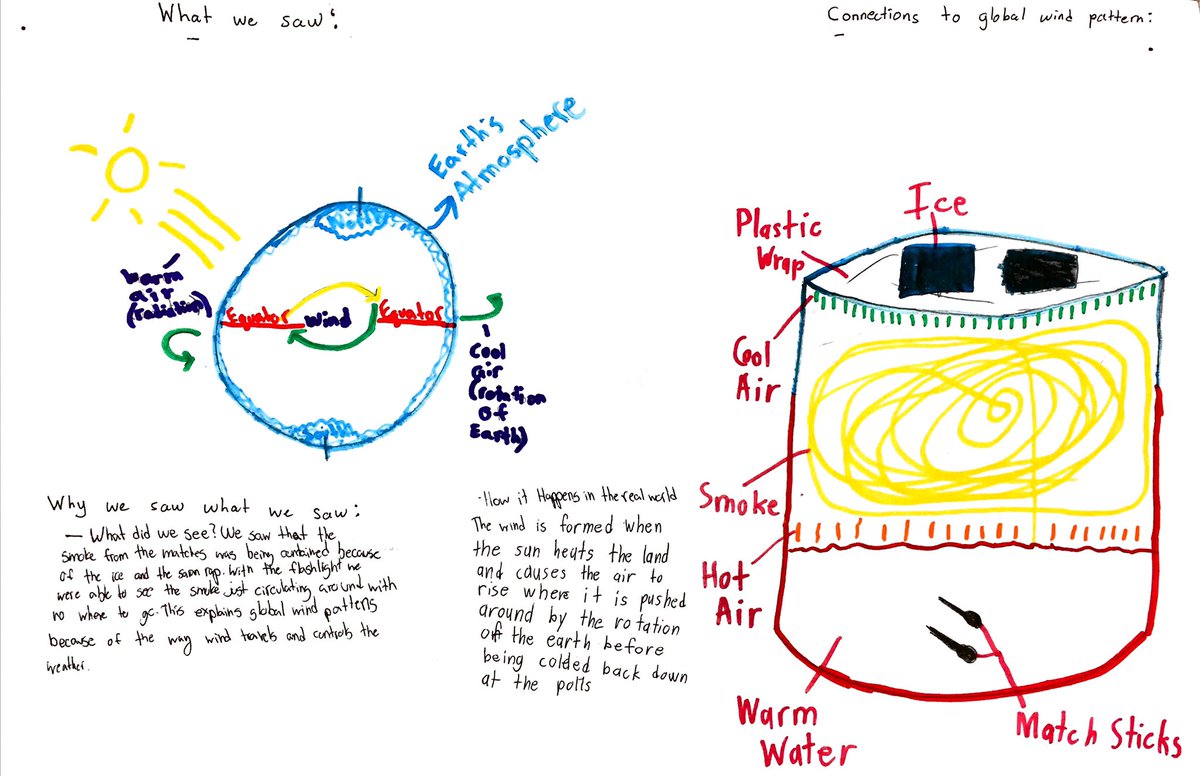 What we saw:
Connections to global wind pattern:
Earth's
Atmosphere
North
warm
air
(radiation)
Equator
Wind
Equator
Cool
air
(rotation
of
Earth)
South
Ice
Plastic
Wrap
Cool
Air
Smoke
Hot
Air
Warm
Water
Match Sticks
Why we saw what we saw:
— What did we see? We saw that the
smoke from the matches was being conbined because
of the ice and the saran rap. With the flashlight we
were able to see the smoke just circulating around with
no where to go. This explains global wind pattens
because of the way wind travels and controls the
weather.
·How it Happens in the real world
The wind is formed when
the sun heats the land
and causes the air to
rise where it is pushed
around by the rotation
of the earth before
being colded back down
at the polls